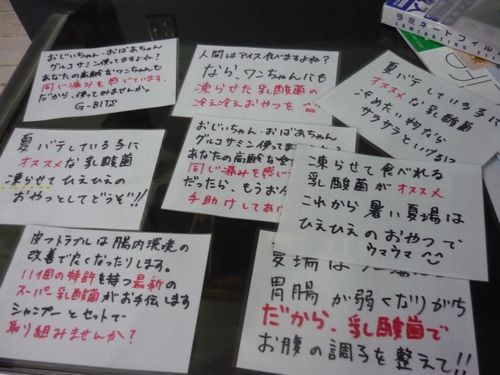 おじいちゃん・おばあちゃん
グルコサミン使ってますよね?
あなたの高齢なワンちゃんも
同じ痛みを感じています。
だから・使ってみませんか。
G-BITS
人間はアイス食べますよね?
なら、ワンちゃんにも
凍らせた乳酸菌の
冷え冷えおやつを
夏バテしている子に
オススメな乳酸菌
冷めたい物なら
ラミネートフィルム
夏バテしている子に
オススメな乳酸菌
凍らせてひえひえの
おやつとしてどうぞ!!
おじいちゃん・おばあちゃん
グルコサミン使ってま
あなたの高齢な
同じ痛みを感じ
だったら、もうお
手助けしてあ
凍らせて食べれる
乳酸菌がオススメ
これから暑い夏場は
ひえひえのおやつで
ウマウマ
皮フトラブルは腸内環境の
改善で良くなったりします。
11個の特許を持つ最新の
スーパー乳酸菌がお手伝します
シャンプーとセットで
取り組みませんか?
夏場は
胃腸が弱くなりがち
だから、乳酸菌で
お腹の調子を整えて!!